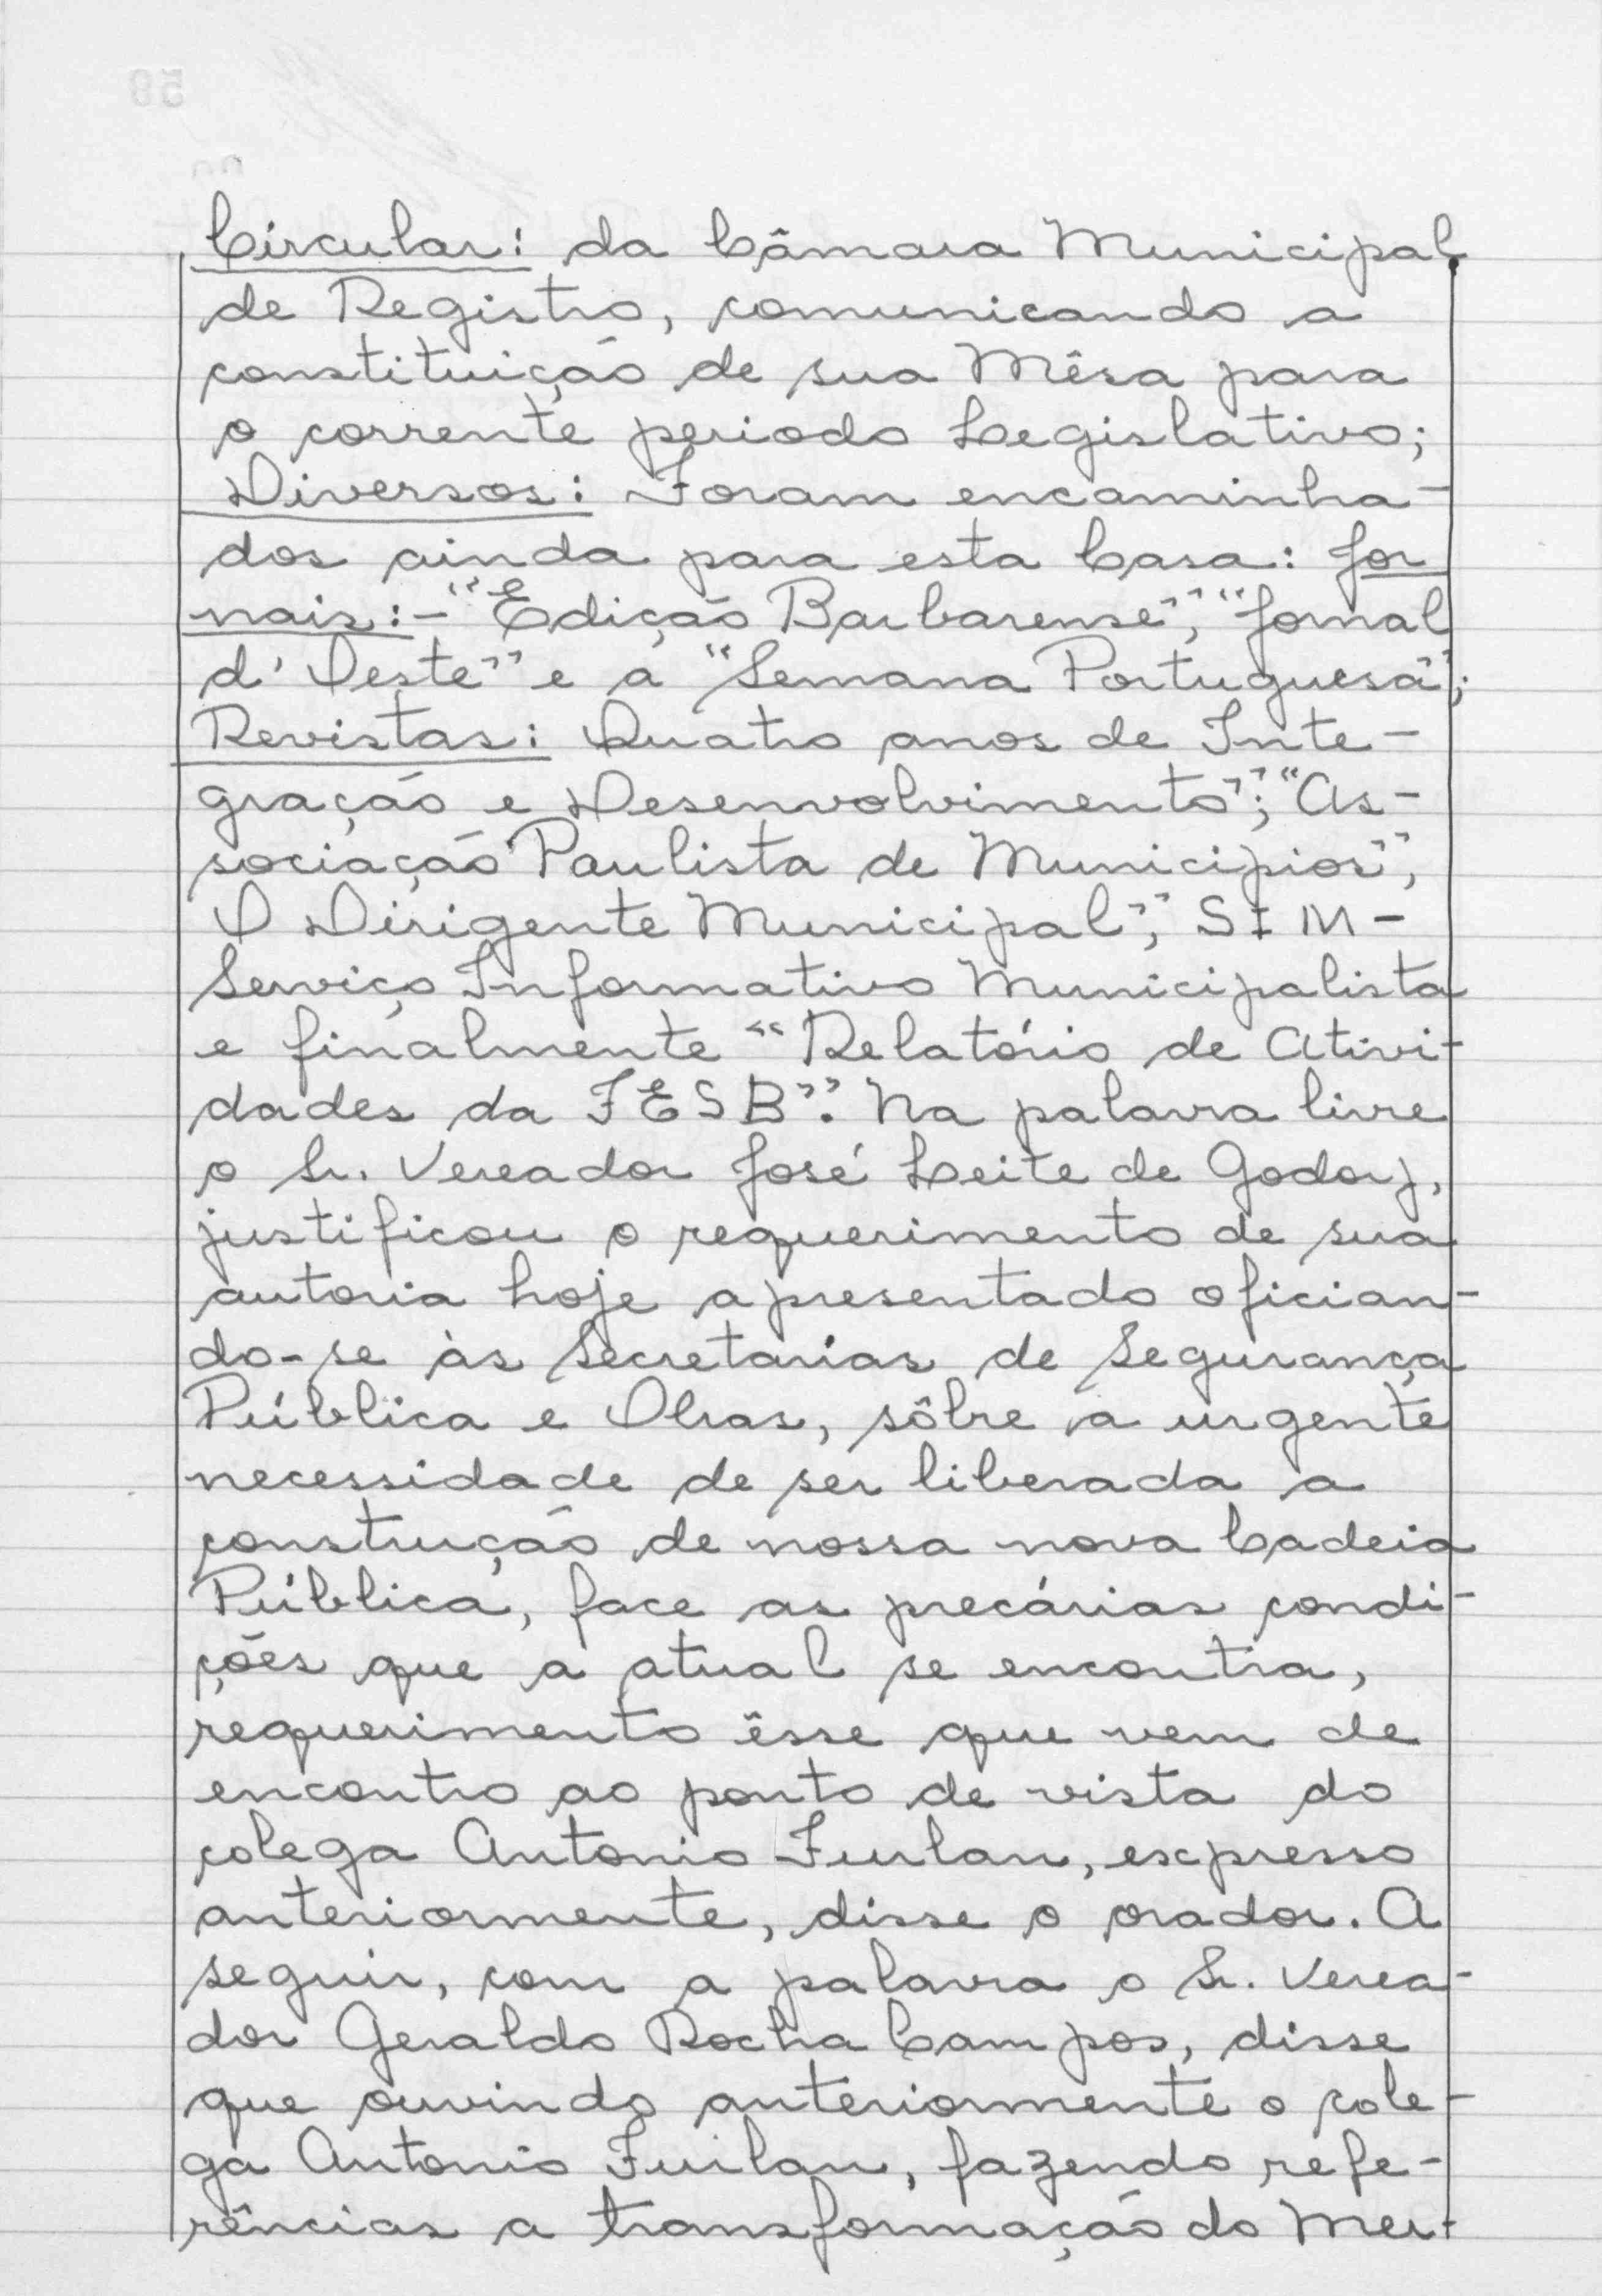 Circular: da Câmara Municipal
de Registro, comunicando a
constituição de sua Mêsa para
o corrente periodo Legislativo;
Diversos: Foram encaminha-
dos ainda para esta Casa: Jor
nais:- "Edição Barbarense", "Jornal
d'Oeste" e a "Semana Portuguesa";
Revistas: Quatro anos de Inte-
gração e Desenvolvimento"; "As-
sociação Paulista de Municipios",
O Dirigente Municipal", SIM-
Serviço Informativo Municipalista
e finalmente "Relatório de Ativi-
dades da FESB". Na palavra livre
o Sr. Vereador José Leite de Godoy,
justificou o requerimento de sua
autoria hoje apresentado ofician-
do-se às Secretarias de Segurança
Pública e Obras, sôbre a urgente
necessidade de ser liberada a
construção de nossa nova Cadeia
Pública, face as precárias condi-
ções que a atual se encontra,
requerimento êsse que vem de
encontro ao ponto de vista do
colega Antonio Furlan, expresso
anteriormente, disse o orador. A
seguir, com a palavra o Sr. Verea-
dor Geraldo Rocha Campos, disse
que ouvindo anteriormente o cole-
ga Antonio Furlan, fazendo refe-
rências a transformação do Mer-